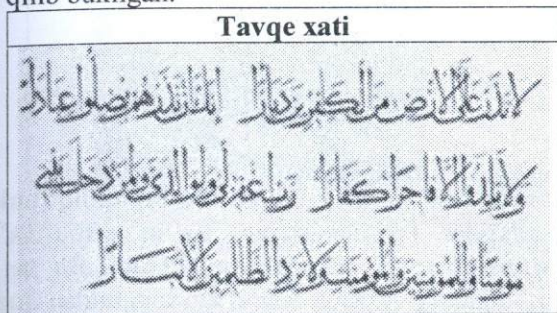 qilib bukilgan.
Tavqe xati
لا تذر على الارض من الكفرين ديارا انك ان تذرهم يضلوا عبادك
ولا يلدوا الا فاجرا كفارا رب اغفر لي ولوالدي ولمن دخل بيتي
مؤمنا وللمؤمنين والمؤمنات ولا تزد الظالمين الا تبارا